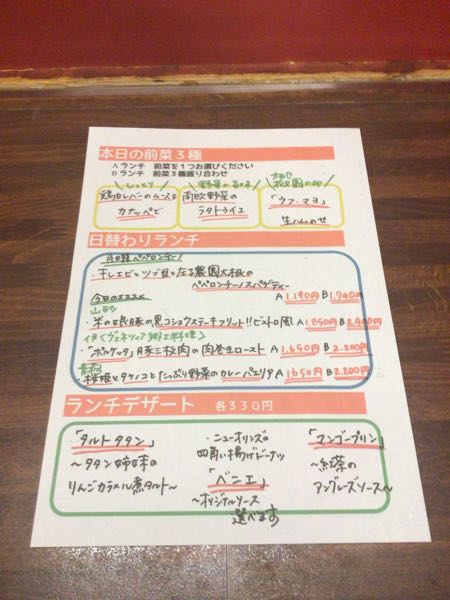 本日の前菜３種
Aランチ　前菜を１つお選びください
Bランチ　前菜３種盛り合わせ
しっとり
鶏白レバーのムースを
カナッペで
野菜の旨味
南欧野菜の
ラタトゥイユ
「ウフ・マヨ」
生ハムのせ
日替わりランチ
月曜ペペロンチーノ
・干しエビとツブ貝と庄子農園大根の
ペペロンチーノスパゲティー
A 1.190円 B 1.740円
今日のオススメ
山形
・米の娘豚の黒コショウステーキフリット!!ビストロ風 A 1.850円 B 2.400円
伊(ヴェネツィア郷土料理)
・「ポルケッタ」豚三枚肉の肉巻生ロースト A 1.650円 B 2.200円
青森
桜姫とタケノコとたっぷり野菜のカレーパエリア A 1650円 B 2.200円
ランチデザート　各３３０円
・「タルトタタン」
～タタン姉妹の
りんごカラメル煮タルト～
・ニューオリンズの
四角い揚げドーナツ
「ベニエ」
～オリジナルソース
選べます
「マンゴープリン」
～紅茶の
アングレーズソース～